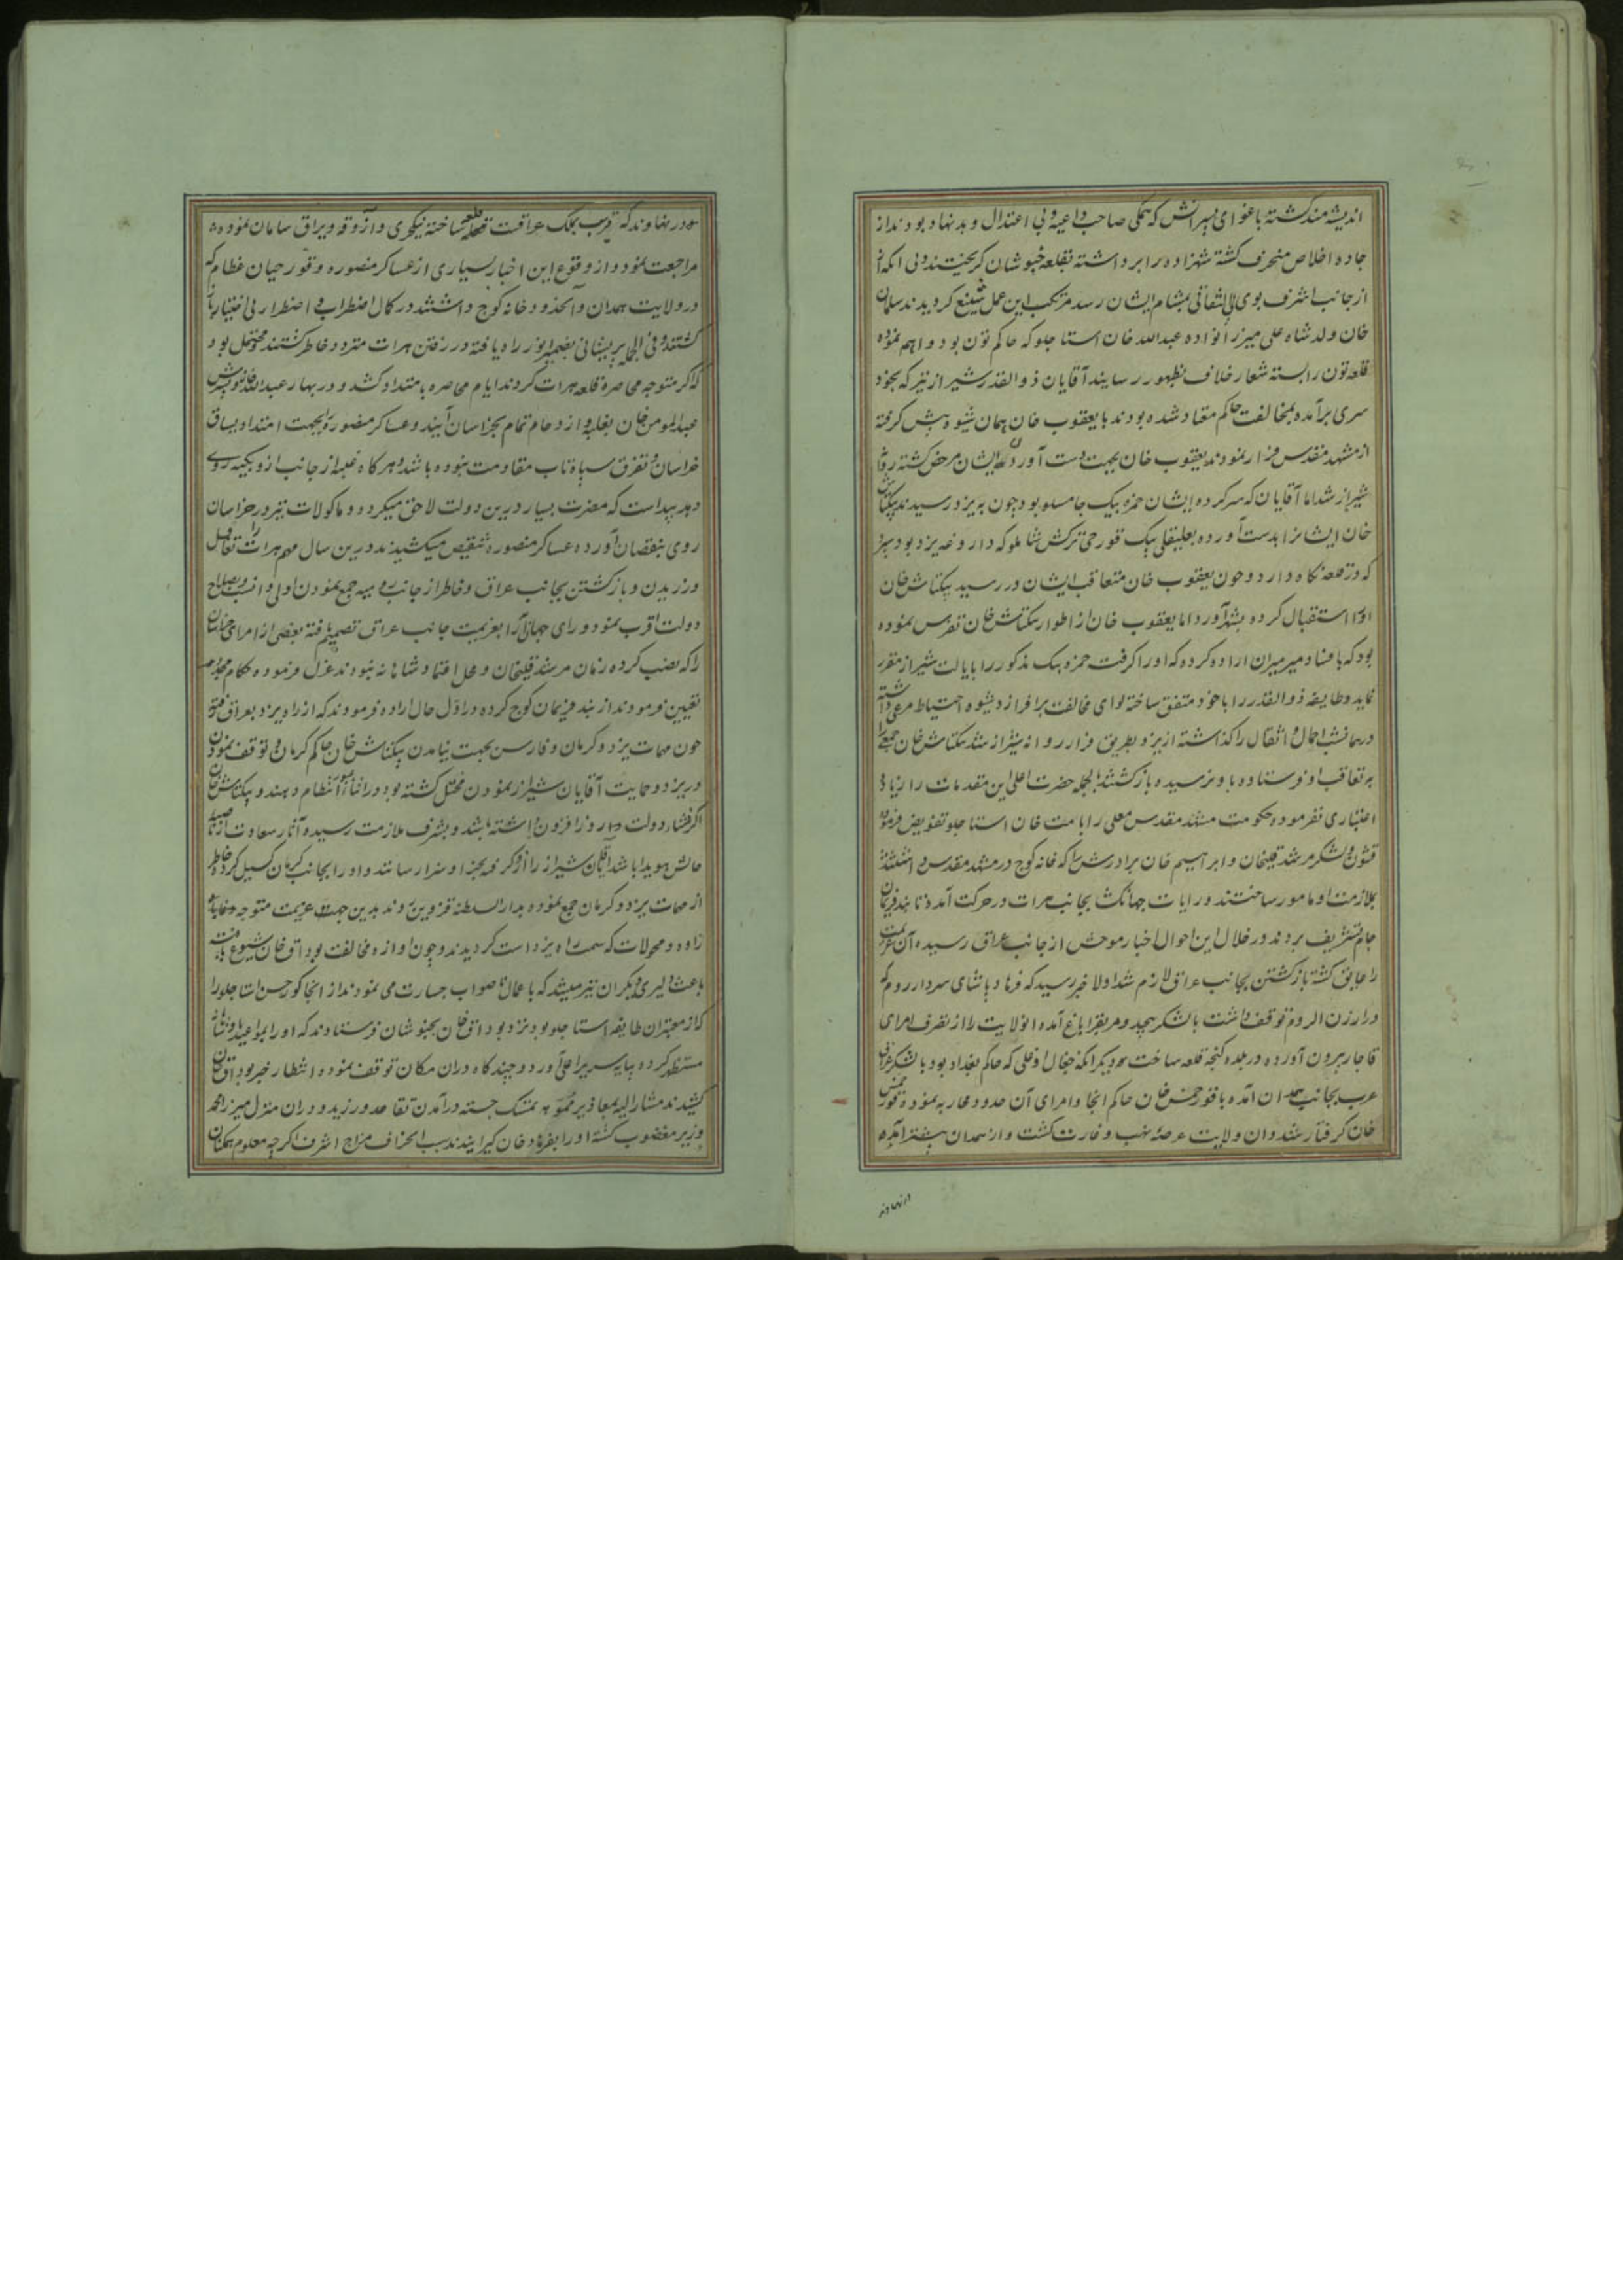 اندیشه مند گشته باغوای پسرانش که همگی صاحب داعیه و بی اعتدال و بدنهاد بودند از
جاده اخلاص منحرف گشته شهزاده را برداشته بقلعه خبوشان گریختند بی آنکه
از جانب اشرف بوی بی التفاتی بمشام ایشان رسد مرتکب این عمل شنیع گردیدند سلمان
خان ولد شاه علی میرزا نواده عبدالله خان استاجلو که حاکم تون بود او هم نموده
قلعه تون را بسته شعار خلاف بظهور رسانید آقایان ذوالقدر شیراز نیز که بخود
سری برآمده بمخالفت حکم معتاد شده بودند با یعقوب خان همان شیوه پیش گرفته
از مشهد مقدس فرار نمودند یعقوب خان بجهت بدست آوردن ایشان مرخص گشته روانه
شیراز شد اما آقایان که سرکرده ایشان حمزه بیک جامسلو بود چون به یزد رسیدند بیکتاش
خان ایشانرا بدست آورده بعلیقلی بیک قورچی ترکش شاملو که داروغه یزد بود سپرد
که در قلعه نگاه دارد و چون یعقوب خان متعاقب ایشان در رسید بیکتاش خان
او را استقبال کرده بشهر آورد اما یعقوب خان از اطوار بیکتاش خان تفرس نموده
بود که با فساد میرمیران اراده کرده که او را گرفت حمزه بیک مذکور را بایالت شیراز مقرر
نماید و طایفه ذوالقدر را با خود متفق ساخته لوای مخالفت برافرازد شیوه احتیاط مرعی داشته
در همان شب احمال و اثقال را گذاشته از یزد بطریق فرار روانه شیراز شد بیکتاش خان جمعی را
به تعاقب او فرستاده باو نرسیده بازگشتند بالجمله حضرت اعلی این مقدمات را زیاد
اعتباری نفرموده حکومت مشهد مقدس معلی را بامت خان استاجلو تفویض فرموده
قشون و لشکر مرشد قلیخان و ابراهیم خان برادرش را که خانه کوچ در مشهد مقدس داشتند
بملازمت او مامور ساختند و رایات جهانگشا بجانب هرات در حرکت آمد و تا بند فریمان
جام تشریف بردند در خلال این احوال اخبار موحش از جانب عراق رسیده آن عزیمت
را عایق گشته بازگشتن بجانب عراق لازم شد اولا خبر رسید که فرهاد پاشای سردار روم که
در ارزن الروم توقف داشت با لشکر بیحد و مر بقراباغ آمده آنولایت را از تصرف امرای
قاجار بیرون آورده در بلده گنجه قلعه ساخت دیگر آنکه جغال اوغلی که حاکم بغداد بود با لشکر عراق
عرب بجانب همدان آمده با قورخمس خان حاکم آنجا و امرای آن حدود محاربه نموده قورخمس
خان گرفتار شد و آن ولایت عرصه نهب و غارت گشت و از همدان پیشتر آمده
در نهاوند
در نهاوند که قریب بملک عراقست قلعه ساخته نیکچری و آزوقه و یراق سامان نموده
مراجعت نمود و از وقوع این اخبار بسیاری از عساکر منصوره و قورچیان عظام که
در ولایت همدان و آنحدود خانه کوچ داشتند در کمال اضطراب و اضطرار بی اختیار
گشتند و فی الجمله پریشانی بضمیر انور راه یافته در رفتن هرات متردد خاطر گشتند محتمل بود
که اگر متوجه محاصره قلعه هرات گردند ایام محاصره بامتداد کشد و در بهار عبدالله خان و پسرش
عبدالمومن خان بغلبه و ازدحام تمام بخراسان آیند و عساکر منصوره را بجهت امتداد یساق
خراسان و تفرق سپاه تاب مقاومت نبوده باشد و هر گاه غلبه از جانب ازبکیه روی
دهد پیداست که مضرت بسیار درین دولت لاحق میگردد و ماکولات نیز در خراسان
روی بنقصان آورده عساکر منصوره تنقیص میکشیدند درین سال مهم هرات را تغافل
ورزیدن و بازگشتن بجانب عراق و خاطر از جانب رومیه جمع نمودن اولی و انسب و بصلاح
دولت اقرب نمود و رای جهان آرا بعزیمت جانب عراق تصمیم یافته بعضی از امرای خراسان
را که نصب کرده زمان مرشد قلیخان و محل اعتماد شاهانه نبودند عزل فرموده حکام مجدد
تعیین فرمودند از بند فریمان کوچ کرده در اول حال اراده فرمودند که از راه یزد بعراق روند
چون مهمات یزد و کرمان و فارس بجهت نیامدن بیکتاش خان حاکم کرمان و توقف نمودن
در یزد و حمایت آقایان شیراز نمودن مختل گشته بود در اثناء عبور انتظام دهند و بیکتاش خان
اگر منشاء دولت روزافزون داشته باشد و بشرف ملازمت رسیده آثار سعادت از ناصیه
حالش هویدا باشد آقایان شیراز را از او گرفته بجزا و سزا رسانند و او را بجانب کرمان گسیل کرده خاطر
از مهمات یزد و کرمان جمع نموده بدارالسلطنه قزوین روند بدین جهت عزیمت متوجه
زاوه و محولات که سمت راه یزد است گردیدند و چون آوازه مخالفت بوداق خان شیوع یافت
باعث دلیری دیگران نیز میشد که باعمال ناصواب جسارت می نمودند از آنجا کورحسن استاجلو را
که از معتبران طایفه استاجلو بود نزد بوداق خان بخبوشان فرستادند که او را بمواعید
مستظهر کرده بپایه سریر اعلی آورد و چند گاه در آن مکان توقف نموده انتظار خبر بوداق خان
کشیدند مشارالیه بمعاذیر متمسک جسته در آمدن تقاعد ورزید و در آن منزل میرزا محمد
وزیر مغضوب گشته او را بفرهاد خان گیرانیدند سبب انحراف مزاج اشرف اگرچه معلوم همگنان